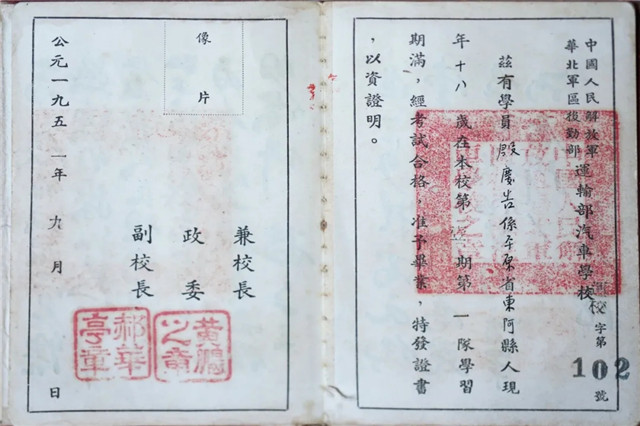 中國人民解放軍
華北軍區後勤部
運輸部汽車學校
校字第102號
茲有學員殷慶係平原省東阿縣人現
年十八歲在本校第期第一隊學習
期滿，經考試合格，准予畢業，特發證書
，以資證明。
像片
兼校長
政委
副校長
黃之章
郝華亭章
公元一九五一年九月 日